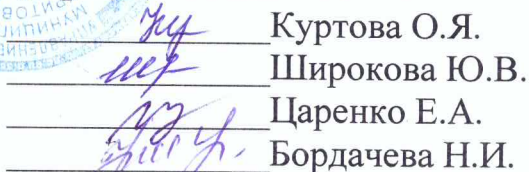 Куртова О.Я.
Широкова Ю.В.
Царенко Е.А.
Бордачева Н.И.